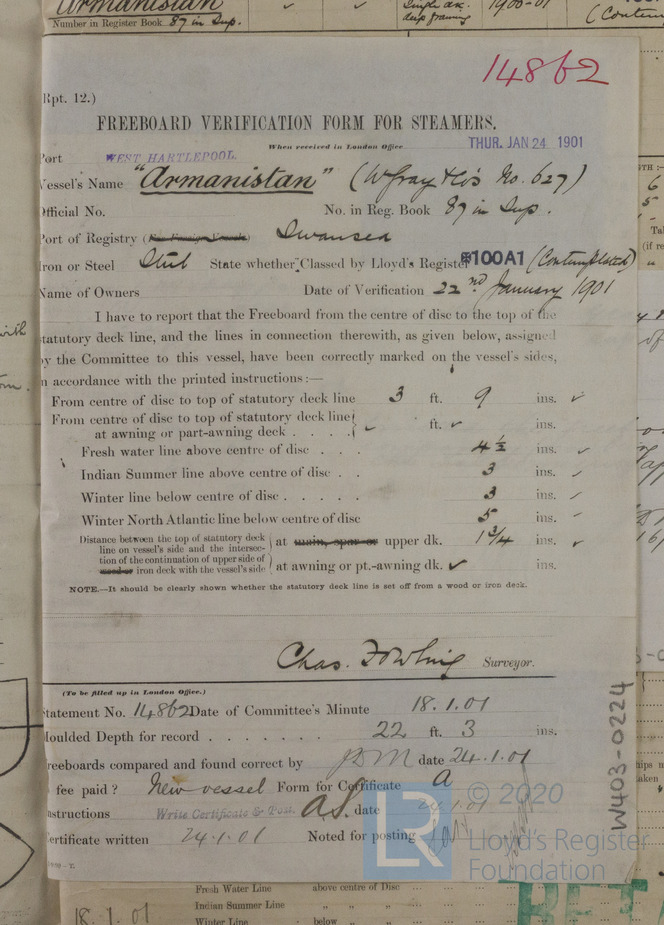 Armanistan
Number in Register Book 87 in Sup.
deep framing
1900-01
14862
Rpt. 12.)
FREEBOARD VERIFICATION FORM FOR STEAMERS.
When received in London Office THUR. JAN 24 1901
Port WEST HARTLEPOOL
Vessel's Name "Armanistan" (W Gray & Co's No. 627)
Official No. No. in Reg. Book 87 in Sup.
Port of Registry Swansea
Iron or Steel Steel State whether Classed by Lloyd's Register 100A1 (Contemplated)
Name of Owners Date of Verification 22nd January 1901
I have to report that the Freeboard from the centre of disc to the top of the
statutory deck line, and the lines in connection therewith, as given below, assigned
by the Committee to this vessel, have been correctly marked on the vessel's sides,
in accordance with the printed instructions:—
From centre of disc to top of statutory deck line 3 ft. 9 ins. ✓
From centre of disc to top of statutory deck line
at awning or part-awning deck . . . . ✓ ft. ✓ ins.
Fresh water line above centre of disc . . . 4½ ins. ✓
Indian Summer line above centre of disc . . 3 ins. ✓
Winter line below centre of disc . . . . . 3 ins. ✓
Winter North Atlantic line below centre of disc 5 ins.
Distance between the top of statutory deck
line on vessel's side and the intersec-
tion of the continuation of upper side of
wood or iron deck with the vessel's side
at main, spar or upper dk. 1¾ ins. ✓
at awning or pt.-awning dk. ✓ ins.
NOTE.—It should be clearly shown whether the statutory deck line is set off from a wood or iron deck.
Chas. Dowling Surveyor.
(To be filled up in London Office.)
Statement No. 14862 Date of Committee's Minute 18.1.01
Moulded Depth for record . . . . . . . 22 ft. 3 ins.
Freeboards compared and found correct by date 24.1.01
fee paid? New vessel Form for Certificate A
Instructions Write Certificate & Post. date
Certificate written 24.1.01 Noted for posting
W403-0224
© 2020
LR
Lloyd's Register
Foundation
Fresh Water Line above centre of Disc
Indian Summer Line " "
Winter Line below "
18.1.01